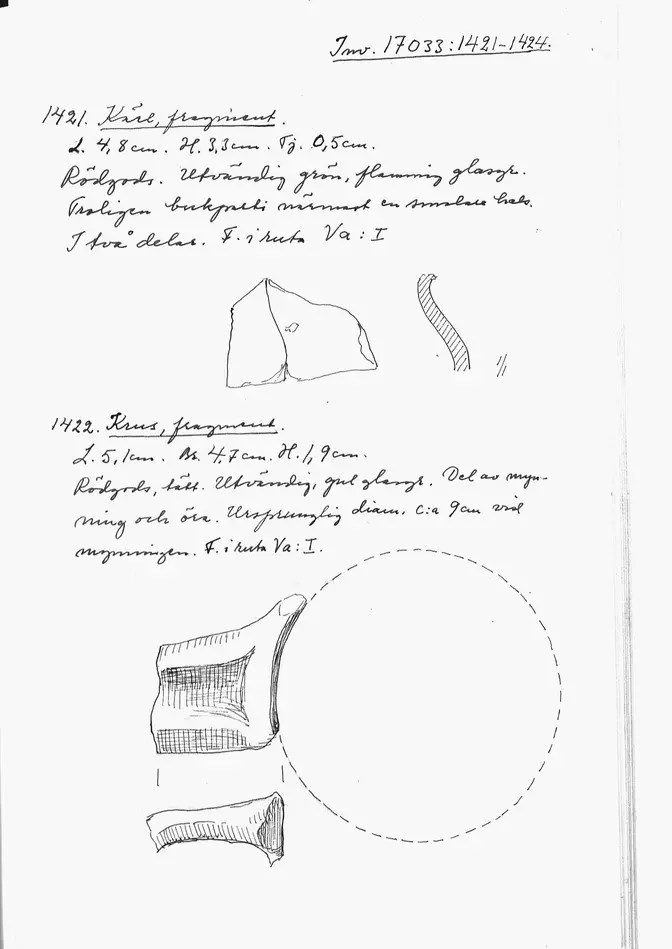 Inv. 17033:1421-1424.
1421. Kärl, fragment.
L. 4,8cm. H. 3,3cm. Tj. 0,5cm.
Rödgods. Utvändig grön, flammig glasyr.
Troligen bukparti närmast en smalare hals.
I två delar. F. i ruta Va:I
1/1
1422. Krus, fragment.
L. 5,1cm. Br. 4,7cm. H. 1,9cm.
Rödgods, tätt. Utvändig, gul glasyr. Del av myn-
ning och öra. Ursprunglig diam. c:a 9cm vid
mynningen. F. i ruta Va:I.